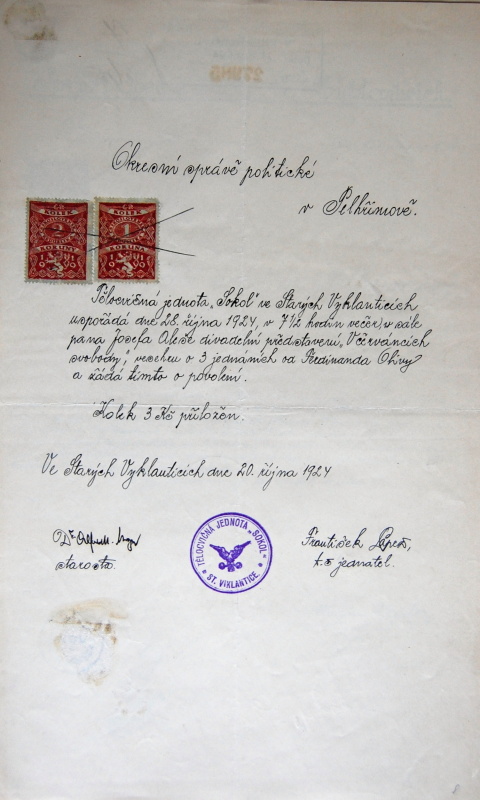 Okresní správě politické
v Pelhřimově.
ČS
KOLEK
2
KORUNY
ČS
KOLEK
1
KORUNA
Tělocvičná jednota „Sokol" ve Starých Vyklanticích
uspořádá dne 28. října 1924, v 7 1/2 hodin večer, v sále
pana Josefa Aleše divadelní představení, „V červáncích
svobody," veselru o 3 jednáních od Ferdinanda Olivy
a žádá tímto o povolení.
Kolek 3 Kč přiložen.
Ve Starých Vyklanticích dne 20. října 1924
Dr
starosta.
TĚLOCVIČNÁ JEDNOTA „SOKOL"
ST. VIKLANTICE
František
t. č. jednatel.